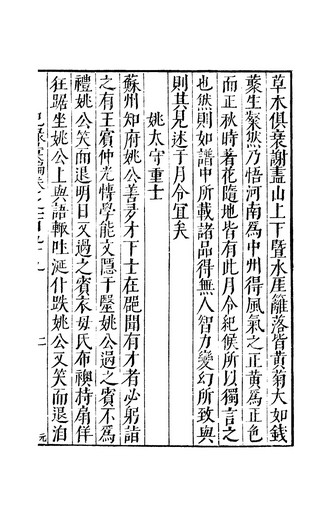 草木俱衰謝盡山上下暨水崖籬落皆黃菊大如錢
叢生粲然乃悟河南爲中州得風氣之正黃爲正色
而正秋時著花隨地皆有此月令紀候所以獨言之
也然則如譜中所載諸品得無人智力變幻所致與
則其見述于月令宜矣
姚太守重士
蘇州知府姚公善好才下士在郡聞有才者必躬詣
之有王賓仲光博學能文隱于醫姚公過之賓不爲
禮姚公笑而退明日又過之賓衣母氏布襖持扇佯
狂踞坐姚公上與語輙吐涎什跌姚公又笑而退泊
二
元